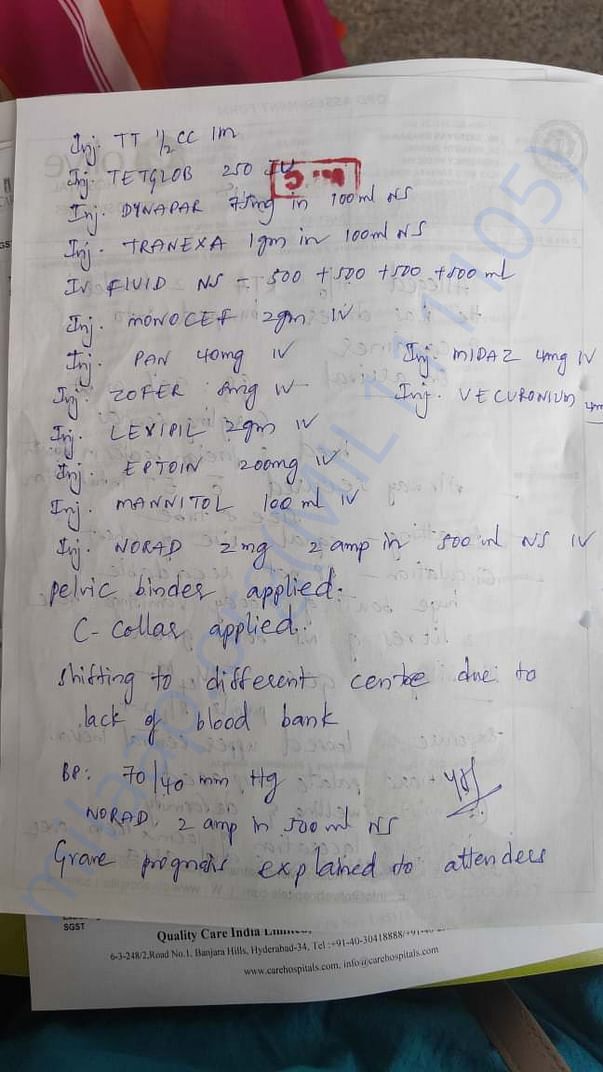 Inj. TT 1/2 CC IM
Inj. TETGLOB 250 IU
Inj. DYNAPAR 75mg in 100ml NS
Inj. TRANEXA 1gm in 100ml NS
IV FLUID NS - 500 + 500 + 500 + 500 mL
Inj. MONOCEF 2gm IV
Inj. PAN 40mg IV Inj. MIDAZ 4mg IV
Inj. ZOFER 8mg IV Inj. VECURONIUM 4m
Inj. LEXIPIL 2gm IV
Inj. EPTOIN 200mg IV
Inj. MANNITOL 100 ml IV
Inj. NORAD 2mg 2 amp in 500 ml NS IV
pelvic binder applied.
C-Collar applied.
Shifting to different centre due to
lack of blood bank
BP: 70/40 mm Hg
NORAD. 2 amp in 500 ml NS
Grave prognosis explained to attenders
milaapcare(MIL1111105)
SGST
Quality Care India
6-3-248/2,Road No.1, Banjara Hills, Hyderabad-34, Tel :+91-40-30418888/+91-40-
www.carehospitals.com, info@carehospitals.com